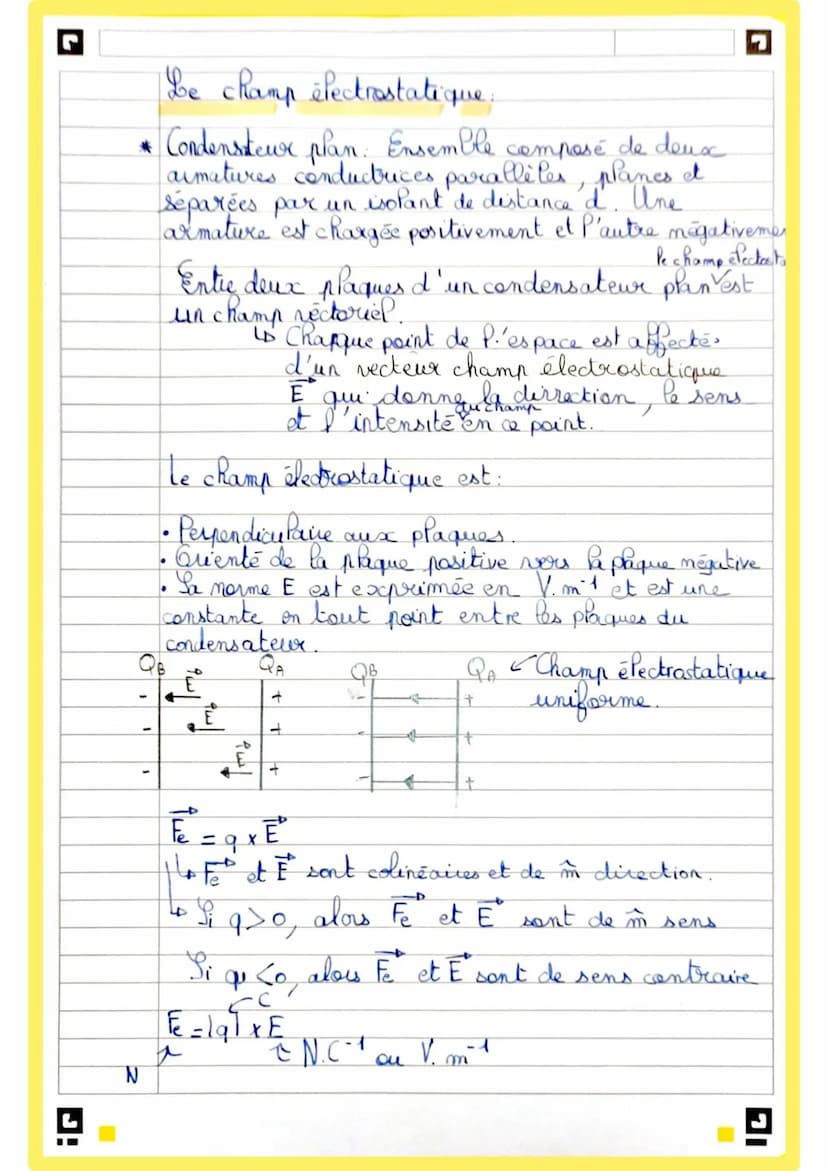 Le champ électrostatique:
* Condensateur plan: Ensemble composé de deux
armatures conductrices parallèles, planes et
séparées par un isolant de distance d. Une
armature est chargée positivement et l'autre négativeme
le champ électrosta
Entre deux plaques d'un condensateur plan ˅ est
un champ vectoriel.
↳ Chaque point de l'espace est affecté
d'un vecteur champ électrostatique
E⃗ qui donne la dirrection, le sens
du champ
et l'intensité en ce point.
Le champ électrostatique est:
• Perpendiculaire aux plaques.
• Orienté de la plaque positive vers la plaque négative
• Sa norme E est exprimée en V.m⁻¹ et est une
constante en tout point entre les plaques du
condensateur.
Q_B Q_A Q_B Q_A ↙ Champ électrostatique
uniforme.
- E⃗ + - +
- E⃗ + - +
- E⃗ + - +
F⃗e = q × E⃗
↳ F⃗e et E⃗ sont colinéaires et de m̂ direction.
↳ Si q>0, alors F⃗e et E⃗ sont de m̂ sens
Si q <0, alors F⃗e et E⃗ sont de sens contraire
C
Fe = |q| × E
N.C⁻¹ ou V.m⁻¹
N